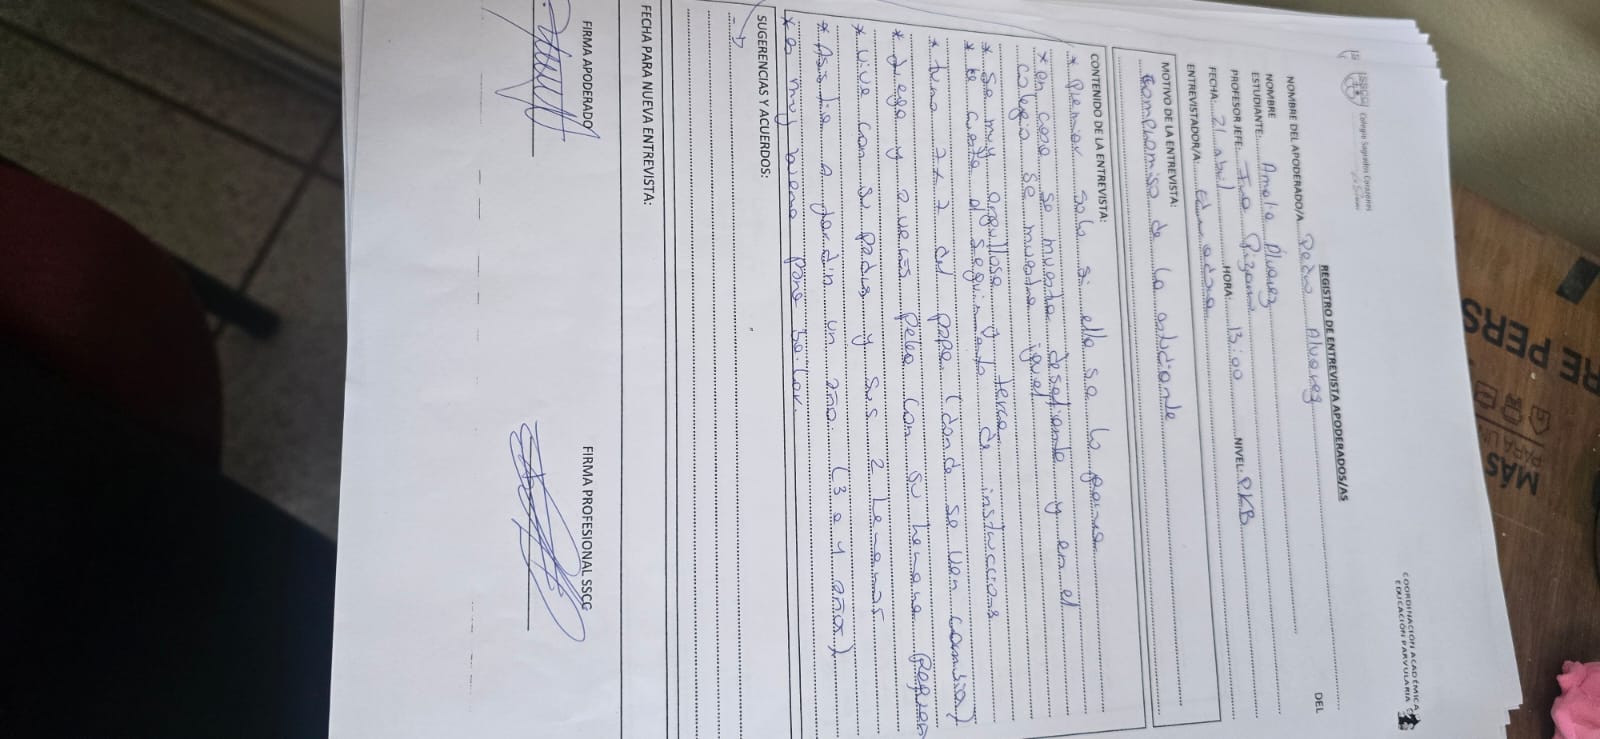 SSCC Colegio Sagrados Corazones
COORDINACIÓN ACADÉMICA
EDUCACIÓN PARVULARIA
REGISTRO DE ENTREVISTA APODERADOS/AS
NOMBRE DEL APODERADO/A Pedro Alvarez DEL
NOMBRE
ESTUDIANTE: Amalia Álvarez
PROFESOR JEFE: Pizarro NIVEL: PKB
FECHA: 21 abril HORA: 13:00
ENTREVISTADOR/A:
MOTIVO DE LA ENTREVISTA:
de la estudiante
CONTENIDO DE LA ENTREVISTA:
* solo si ella se lo
* en casa se muestra desafiante y en el
colegio se muestra igual
* Se muy orgullosa y terca
* le cuesta el seguimiento de instrucciones
* turno 7x7 del papá (donde se ven cambios)
* Juega y a veces pelea con su hermana pequeña
* vive con su padres y sus 2 hermanas
* Asistia a jardin un año (3 a 4 años)
* es muy buena para bailar.
SUGERENCIAS Y ACUERDOS:
FECHA PARA NUEVA ENTREVISTA:
FIRMA APODERADO FIRMA PROFESIONAL SSCC
RE PERS
MÁS
PARA UN